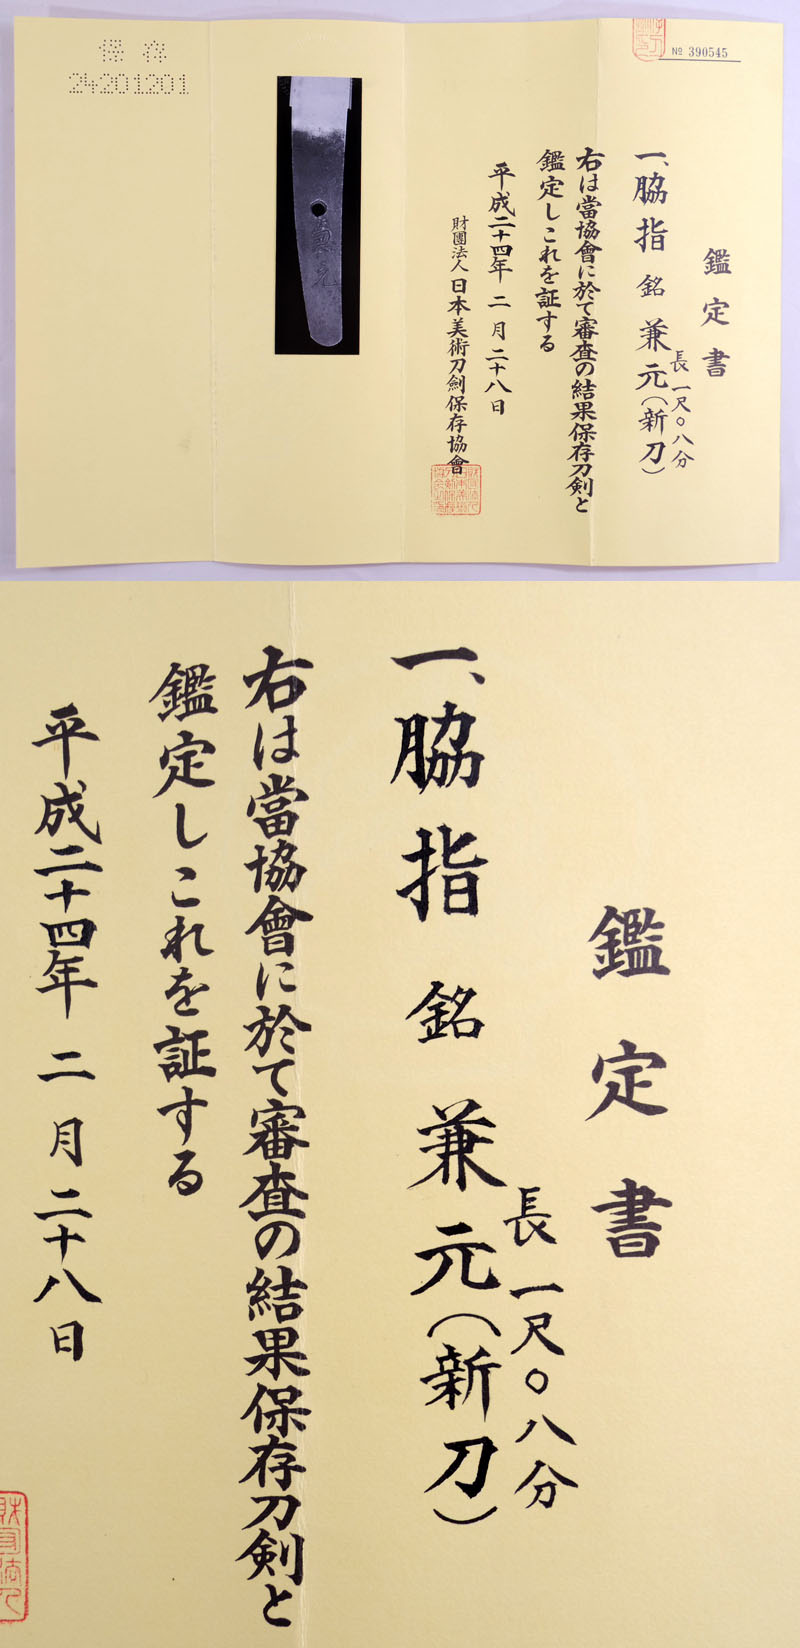 № 390545
鑑定書
長 一尺〇八分
一、脇指 銘 兼元(新刀)
右は當協會に於て審査の結果保存刀剣と
鑑定しこれを証する
平成二十四年 二月 二十八日
財團法人日本美術刀劍保存協會
兼元
保存
24201201
鑑定書
長 一尺〇八分
一、脇指 銘 兼元(新刀)
右は當協會に於て審査の結果保存刀剣と
鑑定しこれを証する
平成二十四年 二月 二十八日